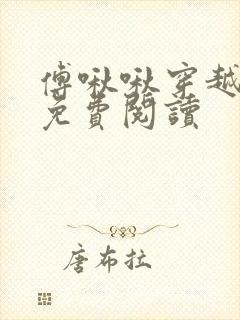 傅啾啾穿越
免費閱讀
唐布拉